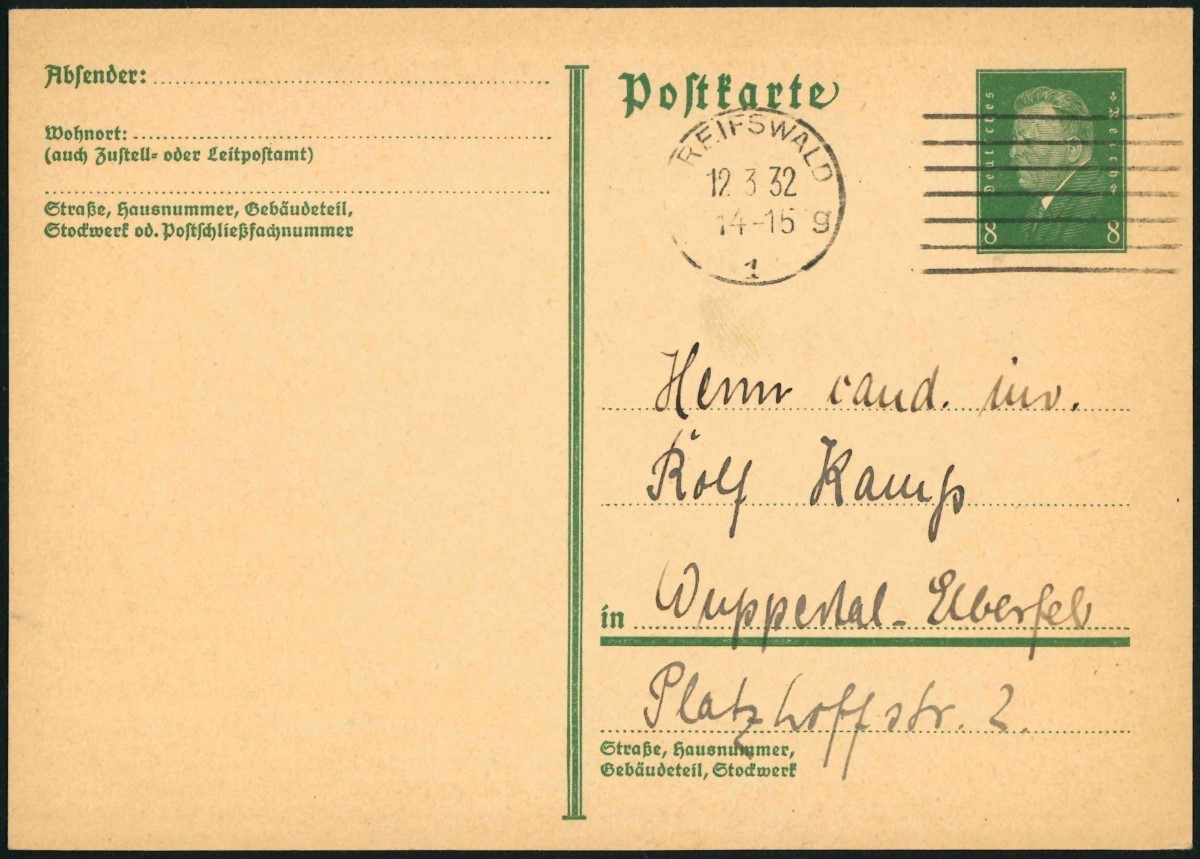 Absender:
Wohnort:
(auch Zustell- oder Leitpostamt)
Straße, Hausnummer, Gebäudeteil,
Stockwerk od. Postschließfachnummer
Postkarte
REIFSWALD
12 3 32
14-15 g
1
Deutsches Reich
8 8
Herrn cand. iur.
Rolf Kamp
in Wuppertal-Elberfeld
Platzhoffstr. 2.
Straße, Hausnummer,
Gebäudeteil, Stockwerk